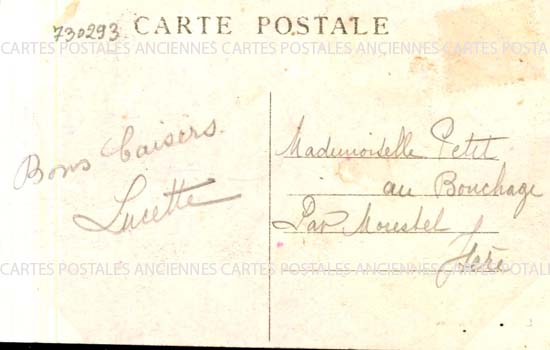 730293 CARTE POSTALE
CARTES POSTALES ANCIENNES CARTES POSTALES ANCIENNES CARTES POSTALES
Bons baisers.
Lucette
Mademoiselle Petit
au Bouchage
Par Morestel
Isère
CARTES POSTALES ANCIENNES CARTES POSTALES ANCIENNES CARTES POSTALES